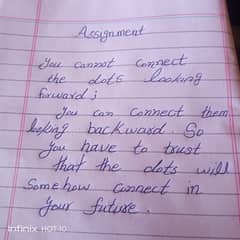 Assignment
You cannot connect
the dots looking
forward;
You can connect them
looking backward. So
you have to trust
that the dots will
Somehow connect in
your future.
Infinix HOT 10